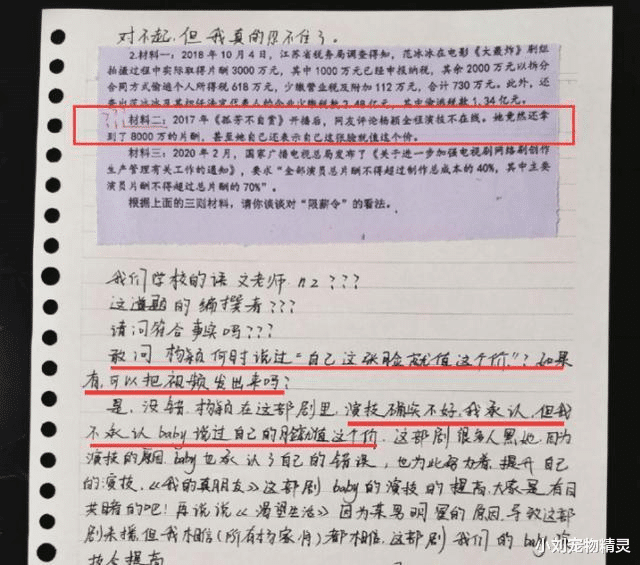 对不起,但我真的忍不住了。
2.材料一:2018年10月4日,江苏省税务局调查得知,范冰冰在电影《大轰炸》剧组
拍摄过程中实际取得片酬3000万元,其中1000万元已经申报纳税,其余2000万元以拆分
合同方式偷逃个人所得税618万元,少缴营业税及附加112万元,合计730万元。此外,还
查出范冰冰及其担任法定代表人的企业少缴税款2.48亿元,其中偷逃税款1.34亿元。
???材料二:2017年《孤芳不自赏》开播后,网友评论杨颖全程演技不在线。她竟然还拿
到了8000万的片酬,甚至她自己还表示自己这张脸就值这个价。
材料三:2020年2月,国家广播电视总局发布了《关于进一步加强电视剧网络剧创作
生产管理有关工作的通知》,要求“全部演员总片酬不得超过制作总成本的40%,其中主要
演员片酬不得超过总片酬的70%”。
根据上面的三则材料,请你谈谈对“限薪令”的看法。
我们学校的语文老师 nz???
这道题的编撰者???
请问符合事实吗???
敢问 杨颖何时说过“自己这张脸就值这个价”?如果
有,可以把视频发出来吗?
是,没错,杨颖在这部剧里,演技确实不好,我承认,但我
不承认baby说过自己的脸值这个价,这部剧很多人黑她,因为
演技的原因,baby也承认了自己的错误,也为此努力着,提升自己
的演技,《我的真朋友》这部剧baby的演技的提高,大家是有目
共睹的吧!再说说《渴望生活》因为某男明星的原因,导致这部
剧未播,但我相信(所有杨家月)都相信,这部剧我们的baby
技会提高
小刘宠物精灵